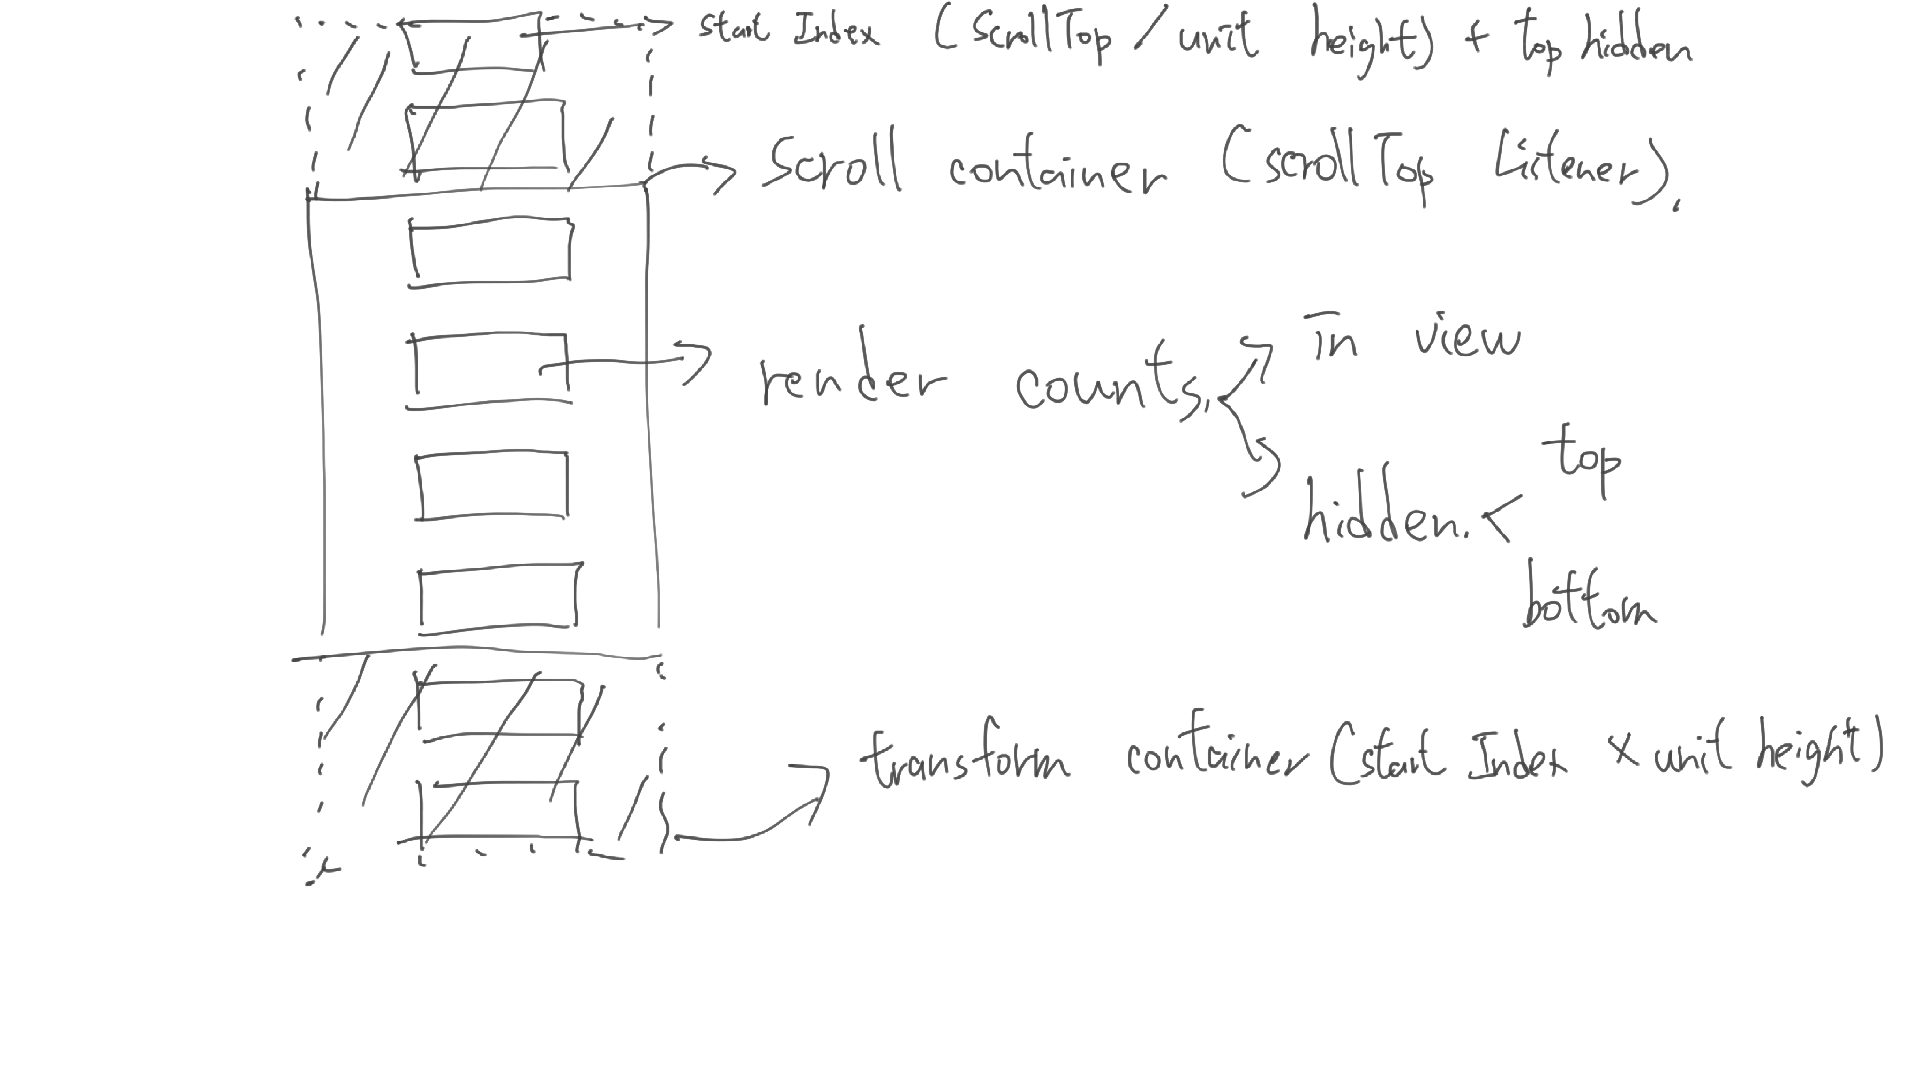 start Index (ScrollTop / unit height) + top hidden
Scroll container (scrollTop Listener).
render counts.
in view
hidden.
top
bottom
transform container (start Index x unit height)